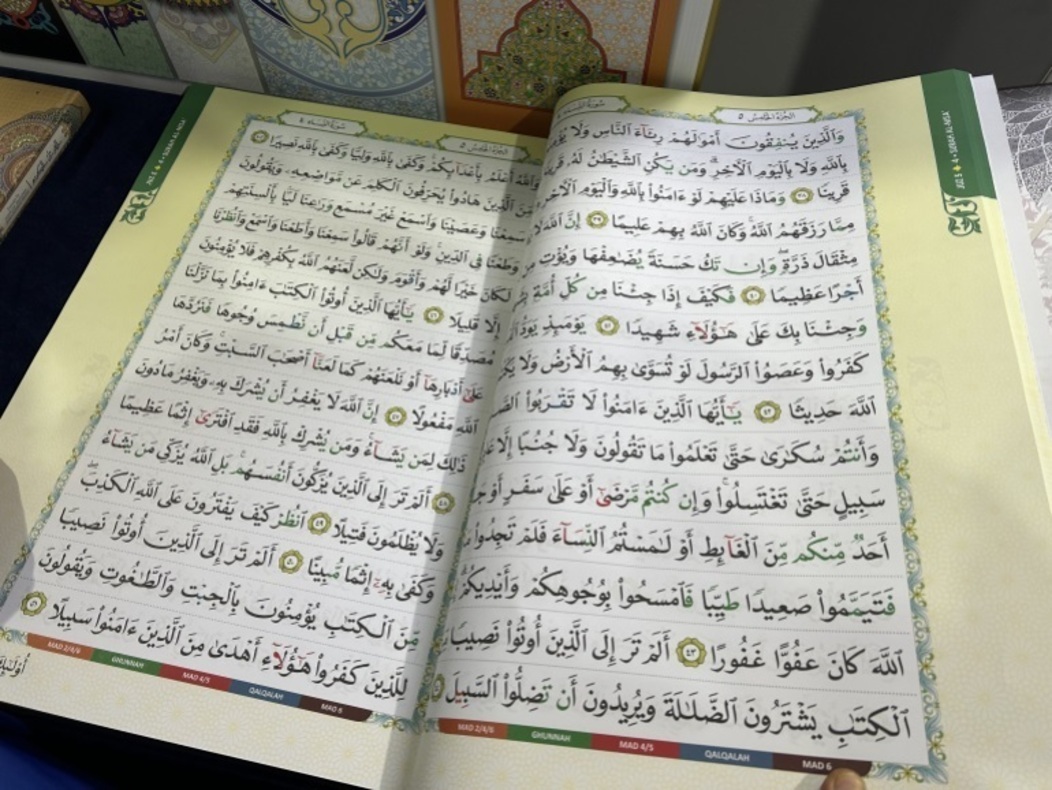 الجزء الخامس ٥
سورة النساء ٤
JUZ 5 4 • SURAH AL-NISA'
وَٱلَّذِينَ يُنفِقُونَ أَمْوَٰلَهُمْ رِئَآءَ ٱلنَّاسِ وَلَا
بِٱللَّهِ وَلَا بِٱلْيَوْمِ ٱلْأَخِرِ ۗ وَمَن يَكُنِ ٱلشَّيْطَٰنُ لَهُۥ
قَرِينًا ٣٨ وَمَاذَا عَلَيْهِمْ لَوْ ءَامَنُوا۟ بِٱللَّهِ وَٱلْيَوْمِ ٱلْأَخِرِ
مِمَّا رَزَقَهُمُ ٱللَّهُ ۚ وَكَانَ ٱللَّهُ بِهِمْ عَلِيمًا ٣٩ إِنَّ ٱللَّهَ لَا
مِثْقَالَ ذَرَّةٍ ۖ وَإِن تَكُ حَسَنَةً يُضَٰعِفْهَا وَيُؤْتِ
أَجْرًا عَظِيمًا ٤٠ فَكَيْفَ إِذَا جِئْنَا مِن كُلِّ أُمَّةٍۭ
وَجِئْنَا بِكَ عَلَىٰ هَٰٓؤُلَآءِ شَهِيدًا ٤١ يَوْمَئِذٍ يَوَدُّ
كَفَرُوا۟ وَعَصَوُا۟ ٱلرَّسُولَ لَوْ تُسَوَّىٰ بِهِمُ ٱلْأَرْضُ وَلَا
ٱللَّهَ حَدِيثًا ٤٢ يَٰٓأَيُّهَا ٱلَّذِينَ ءَامَنُوا۟ لَا تَقْرَبُوا۟
وَأَنتُمْ سُكَٰرَىٰ حَتَّىٰ تَعْلَمُوا۟ مَا تَقُولُونَ وَلَا جُنُبًا إِلَّا
سَبِيلٍ حَتَّىٰ تَغْتَسِلُوا۟ ۚ وَإِن كُنتُم مَّرْضَىٰٓ أَوْ عَلَىٰ سَفَرٍ أَوْ
أَحَدٌ مِّنكُم مِّنَ ٱلْغَآئِطِ أَوْ لَٰمَسْتُمُ ٱلنِّسَآءَ فَلَمْ تَجِدُوا۟
فَتَيَمَّمُوا۟ صَعِيدًا طَيِّبًا فَٱمْسَحُوا۟ بِوُجُوهِكُمْ وَأَيْدِيكُمْ
ٱللَّهَ كَانَ عَفُوًّا غَفُورًا ٤٣ أَلَمْ تَرَ إِلَى ٱلَّذِينَ أُوتُوا۟ نَصِيبًا
ٱلْكِتَٰبِ يَشْتَرُونَ ٱلضَّلَٰلَةَ وَيُرِيدُونَ أَن تَضِلُّوا۟ ٱلسَّبِيلَ
MAD 2/4/6 GHUNNAH MAD 4/5 QALQALAH MAD 6
الجزء الخامس ٥
سورة النساء ٤
JUZ 5 4 • SURAH AL-NISA'
وَٱللَّهُ أَعْلَمُ بِأَعْدَآئِكُمْ ۚ وَكَفَىٰ بِٱللَّهِ وَلِيًّا وَكَفَىٰ بِٱللَّهِ نَصِيرًا ٤٥
مِّنَ ٱلَّذِينَ هَادُوا۟ يُحَرِّفُونَ ٱلْكَلِمَ عَن مَّوَاضِعِهِۦ وَيَقُولُونَ
سَمِعْنَا وَعَصَيْنَا وَٱسْمَعْ غَيْرَ مُسْمَعٍ وَرَٰعِنَا لَيًّۢا بِأَلْسِنَتِهِمْ
وَطَعْنًا فِى ٱلدِّينِ ۚ وَلَوْ أَنَّهُمْ قَالُوا۟ سَمِعْنَا وَأَطَعْنَا وَٱسْمَعْ وَٱنظُرْنَا
لَكَانَ خَيْرًا لَّهُمْ وَأَقْوَمَ وَلَٰكِن لَّعَنَهُمُ ٱللَّهُ بِكُفْرِهِمْ فَلَا يُؤْمِنُونَ
إِلَّا قَلِيلًا ٤٦ يَٰٓأَيُّهَا ٱلَّذِينَ أُوتُوا۟ ٱلْكِتَٰبَ ءَامِنُوا۟ بِمَا نَزَّلْنَا
مُصَدِّقًا لِّمَا مَعَكُم مِّن قَبْلِ أَن نَّطْمِسَ وُجُوهًا فَنَرُدَّهَا
عَلَىٰٓ أَدْبَارِهَآ أَوْ نَلْعَنَهُمْ كَمَا لَعَنَّآ أَصْحَٰبَ ٱلسَّبْتِ ۚ وَكَانَ أَمْرُ
ٱللَّهِ مَفْعُولًا ٤٧ إِنَّ ٱللَّهَ لَا يَغْفِرُ أَن يُشْرَكَ بِهِۦ وَيَغْفِرُ مَا دُونَ
ذَٰلِكَ لِمَن يَشَآءُ ۚ وَمَن يُشْرِكْ بِٱللَّهِ فَقَدِ ٱفْتَرَىٰٓ إِثْمًا عَظِيمًا
٤٨ أَلَمْ تَرَ إِلَى ٱلَّذِينَ يُزَكُّونَ أَنفُسَهُم ۚ بَلِ ٱللَّهُ يُزَكِّى مَن يَشَآءُ
وَلَا يُظْلَمُونَ فَتِيلًا ٤٩ ٱنظُرْ كَيْفَ يَفْتَرُونَ عَلَى ٱللَّهِ ٱلْكَذِبَ ۖ
وَكَفَىٰ بِهِۦٓ إِثْمًا مُّبِينًا ٥٠ أَلَمْ تَرَ إِلَى ٱلَّذِينَ أُوتُوا۟ نَصِيبًا
مِّنَ ٱلْكِتَٰبِ يُؤْمِنُونَ بِٱلْجِبْتِ وَٱلطَّٰغُوتِ وَيَقُولُونَ
لِلَّذِينَ كَفَرُوا۟ هَٰٓؤُلَآءِ أَهْدَىٰ مِنَ ٱلَّذِينَ ءَامَنُوا۟ سَبِيلًا ٥١
MAD 2/4/6 GHUNNAH MAD 4/5 QALQALAH MAD 6